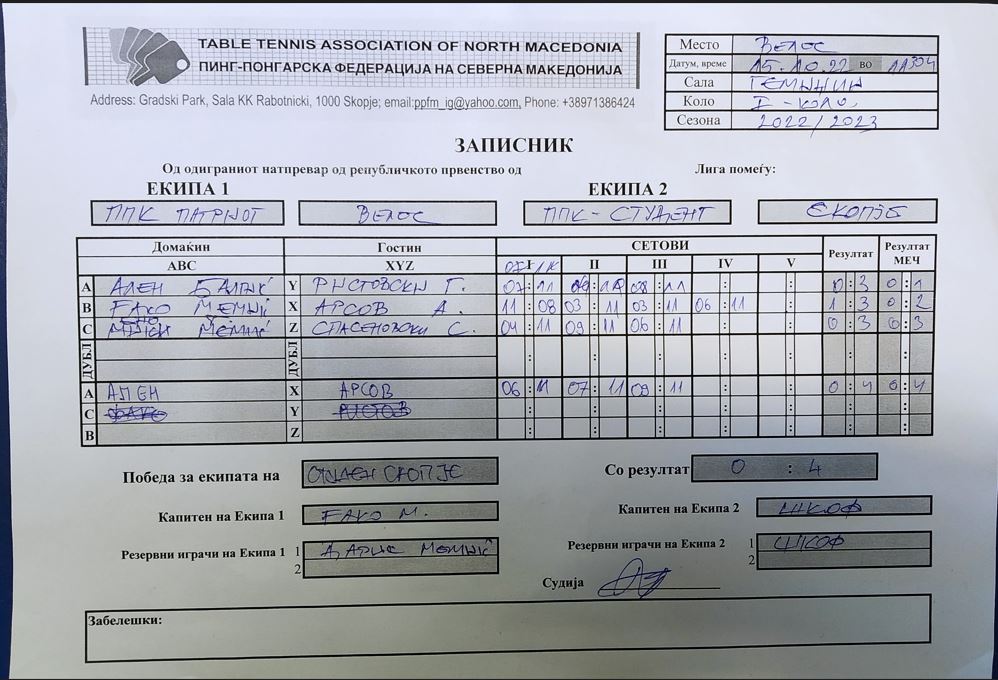 TABLE TENNIS ASSOCIATION OF NORTH MACEDONIA
ПИНГ-ПОНГАРСКА ФЕДЕРАЦИЈА НА СЕВЕРНА МАКЕДОНИЈА
Address: Gradski Park, Sala KK Rabotnicki, 1000 Skopje; email:ppfm_ig@yahoo.com, Phone: +38971386424
Место ВЕЛЕС
Датум, време 15.10.22 во
Сала ГЕМИЏИИ
Коло I - КОЛО
Сезона 2022/2023
ЗАПИСНИК
Од одиграниот натпревар од републичкото првенство од Лига помеѓу:
ЕКИПА 1 ЕКИПА 2
ППК ПАТРИОТ ВЕЛЕС ППК - СТУДЕНТ СКОПЈЕ
Домаќин Гостин СЕТОВИ Резултат Резултат МЕЧ
ABC XYZ I II III IV V
A АЛЕН Y РИСТОВСКИ Г. 07:11 09:11 08:11 : : 0:3 0:1
B ФАКО МЕМИЌ X АРСОВ А. 11:08 03:11 03:11 06:11 : 1:3 0:2
C МЕМИЌ Z СПАСЕНОВСКИ С. 04:11 09:11 06:11 : : 0:3 0:3
ДУБЛ ДУБЛ : : : : : : :
A АЛЕН X АРСОВ 06:11 07:11 09:11 : : 0:4 0:4
C ФАКО Y РИСТОВ : : : : : : :
B Z : : : : : : :
Победа за екипата на СТУДЕН СКОПЈЕ Со резултат 0 : 4
Капитен на Екипа 1 ФАКО М. Капитен на Екипа 2
Резервни играчи на Екипа 1 1 ДАРИС МЕМИЌ Резервни играчи на Екипа 2 1
2 2
Судија
Забелешки: